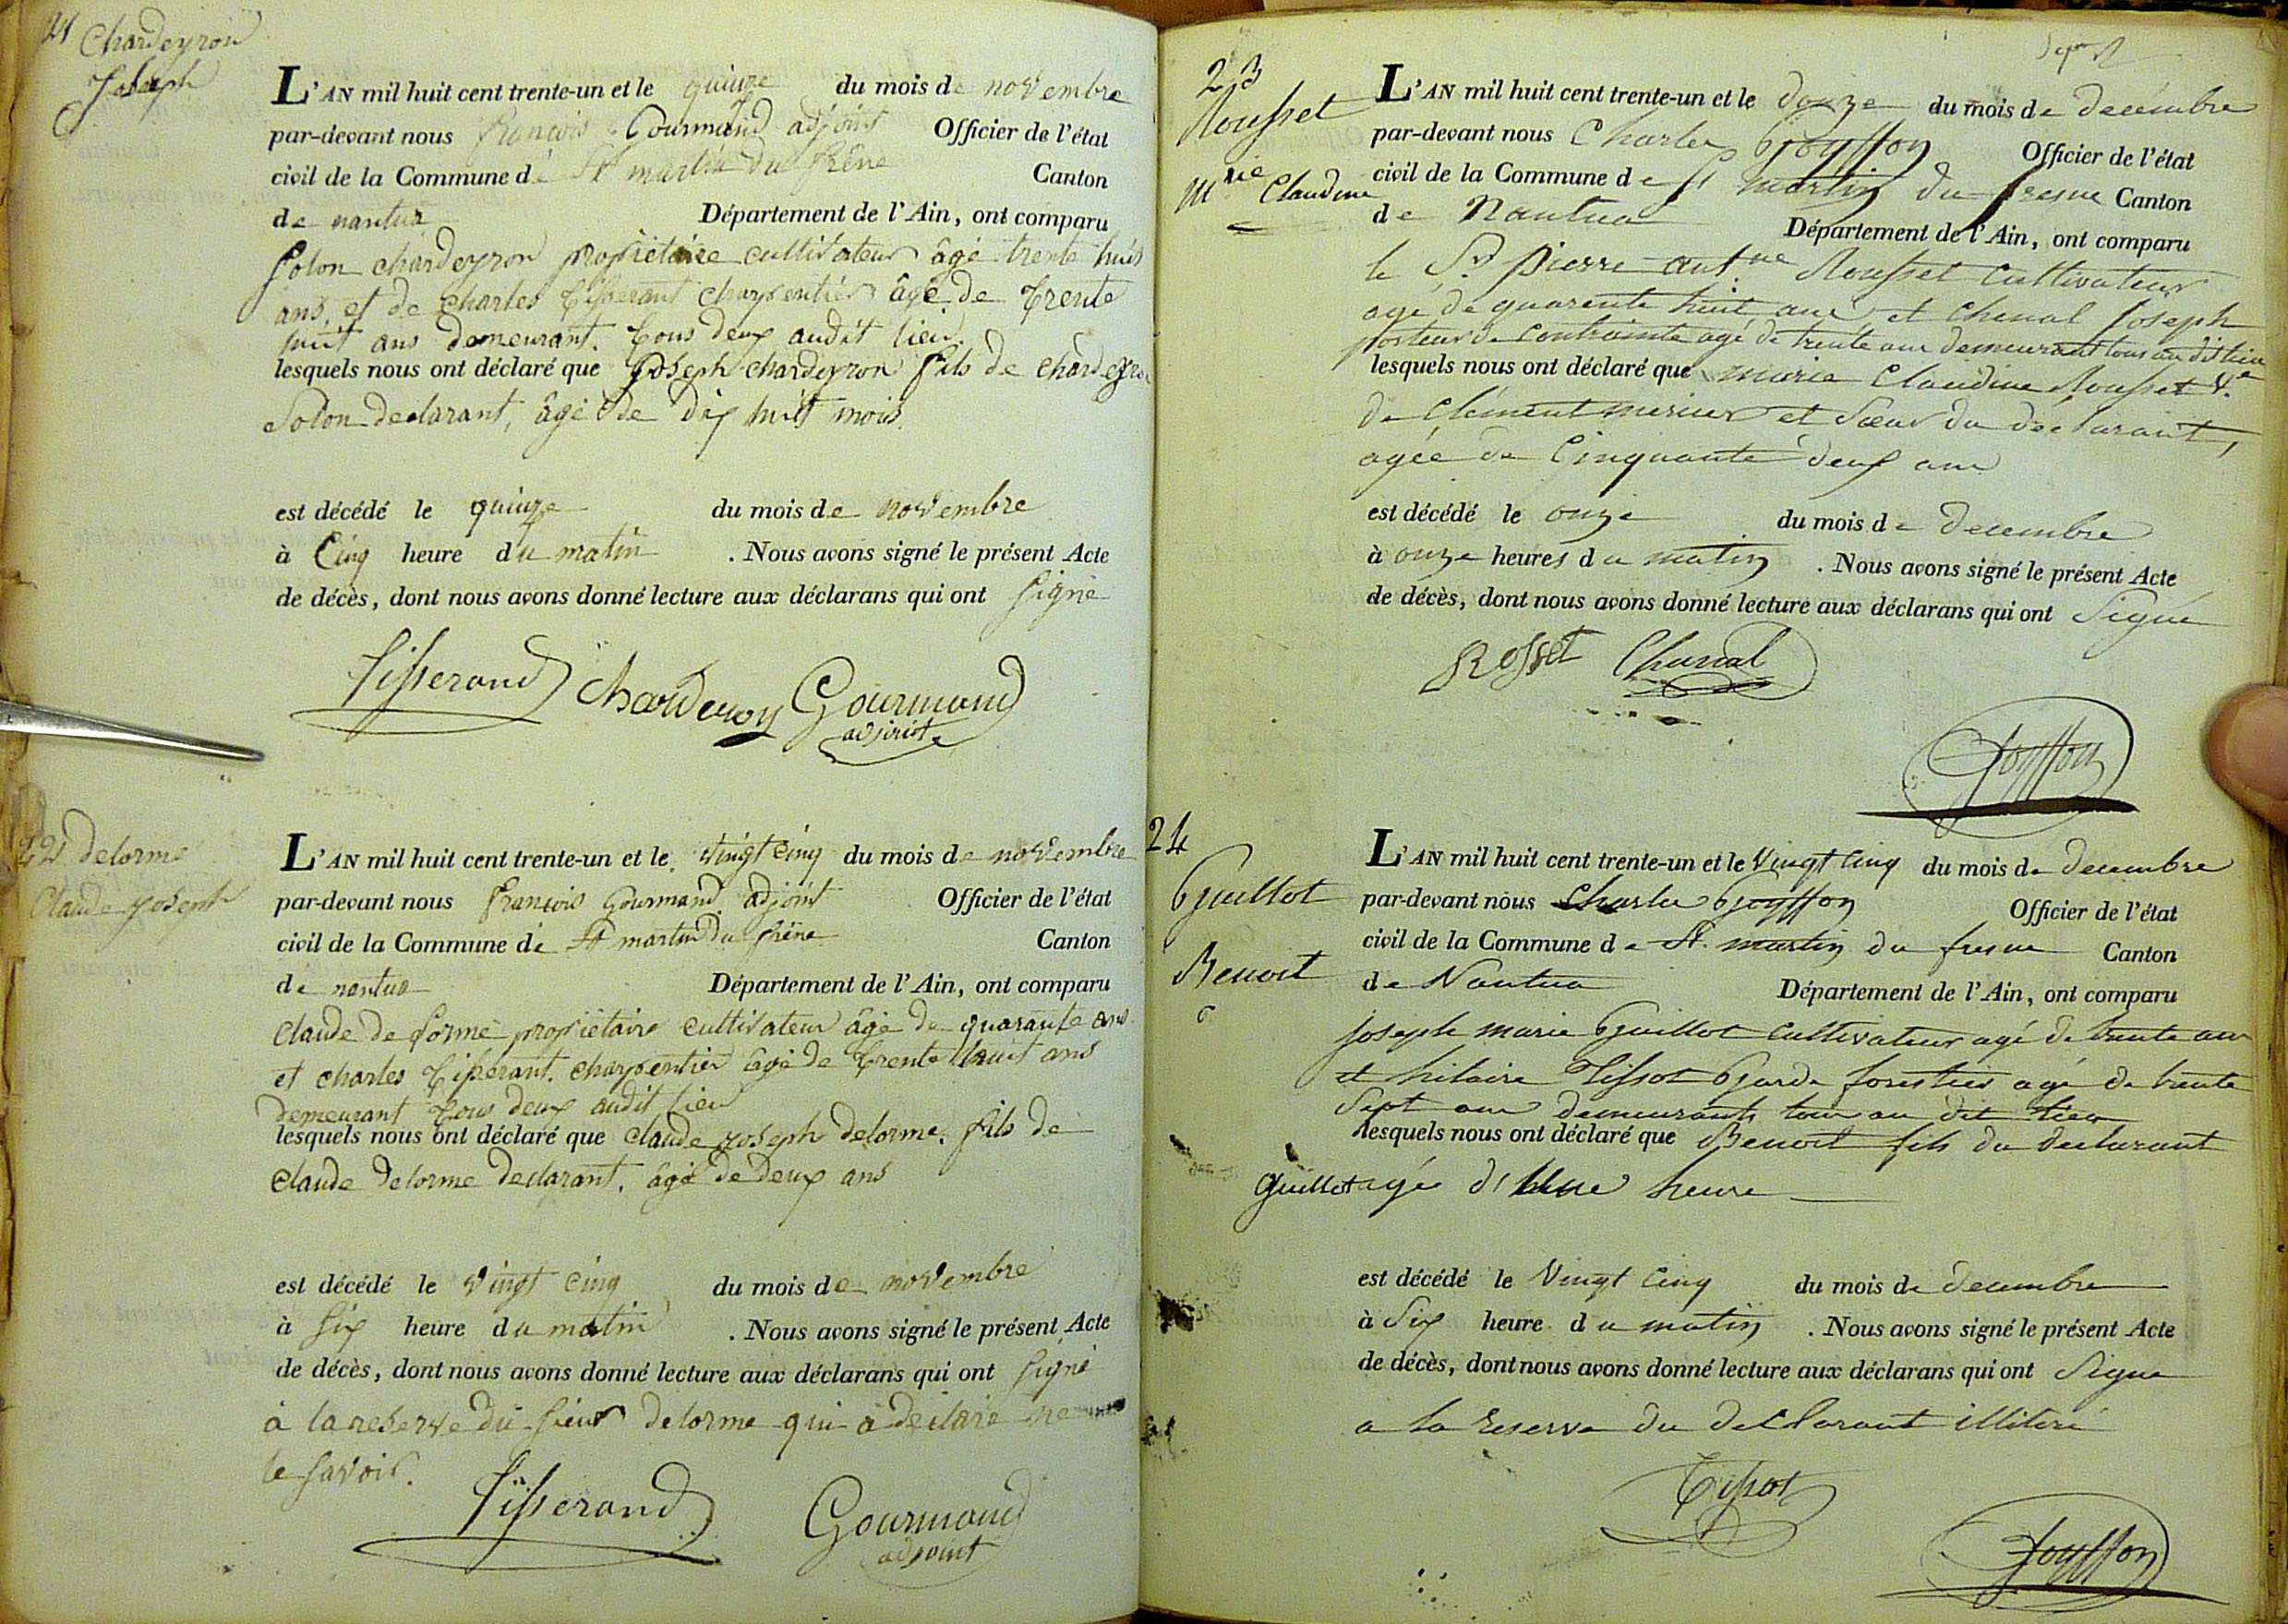 21 Chardeyron
Joseph
L'AN mil huit cent trente-un et le quinze du mois de novembre
par-devant nous françois Gourmand adjoint Officier de l'état
civil de la Commune de St martin du frêne Canton
de nantua Département de l'Ain, ont comparu
Solon chardeyron propriétaire cultivateur âgé trente huit
ans, et de charles tisserant charpentier âgé de trente
huit ans demeurant tous deux audit lieu
lesquels nous ont déclaré que Joseph chardeyron fils de chardeyron
Solon declarant, âgé de dix huit mois
est décédé le quinze du mois de novembre
à Cinq heure du matin . Nous avons signé le présent Acte
de décès, dont nous avons donné lecture aux déclarans qui ont signé
Tisserand Charderon Gourmand
adjoint
22 delorme
Claude joseph
L'AN mil huit cent trente-un et le vingt Cinq du mois de novembre
par-devant nous françois Gourmand adjoint Officier de l'état
civil de la Commune de St martin du frêne Canton
de nantua Département de l'Ain, ont comparu
claude de lorme propriétaire cultivateur âgé de quarante ans
et charles tisserant. charpentier âgé de trente huit ans
demeurant tous deux audit lieu
lesquels nous ont déclaré que claude joseph delorme. fils de
claude delorme declarant. âgé de deux ans
est décédé le vingt cinq du mois de novembre
à six heure du matin . Nous avons signé le présent Acte
de décès, dont nous avons donné lecture aux déclarans qui ont signé
à la reserve du sieur delorme qui a déclaré ne
le savoir.
Tisserand Gourmand
adjoint
23
Rousset
Mrie Claudine
L'AN mil huit cent trente-un et le douze du mois de decémbre
par-devant nous Charles Goyffon Officier de l'état
civil de la Commune de St martin du fresne Canton
de Nantua Département de l'Ain, ont comparu
le Sr pierre antne Rousset cultivateur
agé de quarente huit ans et Chenal Joseph
porteur de contrainte agé de trente ans demeurant tous au dit lieu
lesquels nous ont déclaré que marie Claudine Rousset Ve
de Clément mercier et Sœur du déclarant,
agée de Cinquante deux ans
est décédé le onze du mois de Decembre
à onze heures du matin . Nous avons signé le présent Acte
de décès, dont nous avons donné lecture aux déclarans qui ont Signé
Rosset Chanal
Goyffon
24
Guillot
Benoit
L'AN mil huit cent trente-un et le Vingt Cinq du mois de decembre
par-devant nous Charles Goyffon Officier de l'état
civil de la Commune de St. martin du fresne Canton
de Nantua Département de l'Ain, ont comparu
joseph marie Guillot cultivateur agé de trente ans
et hilaire Tissot Garde forestier agé de trente
Sept ans demeurants tous au dit lieu
lesquels nous ont déclaré que Benoit fils du declarant
Guillot agé d'Une heure
est décédé le Vingt Cinq du mois de decembre
à Six heure du matin . Nous avons signé le présent Acte
de décès, dont nous avons donné lecture aux déclarans qui ont Signé
a la reserve du declarant illitéré
Tissot
Goyffon